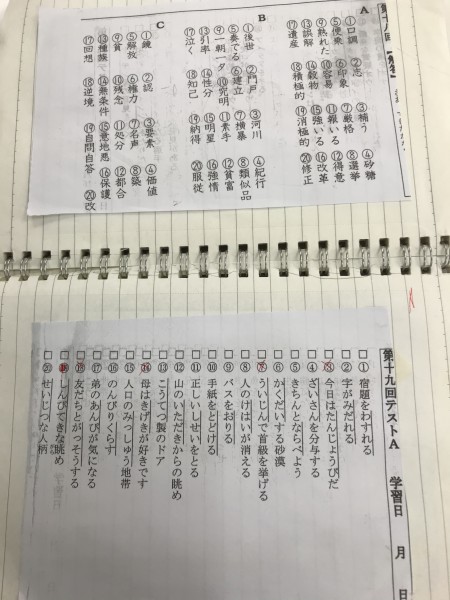 A
①口調 ②恋 ③補う ④砂糖
⑤便乗 ⑥印象 ⑦厳格 ⑧選挙
⑨熟れた ⑩容易 ⑪報いる ⑫得意
⑬誤解 ⑭穀物 ⑮強いる ⑯改革
⑰遺産 ⑱積極的 ⑲消極的 ⑳修正
B
①後世 ②門戸 ③河川 ④紀行
⑤奏でる ⑥建立 ⑦横暴 ⑧類似品
⑨一朝一夕 ⑩究明 ⑪素手 ⑫貧富
⑬引率 ⑭性分 ⑮明星 ⑯強情
⑰泣く ⑱知己 ⑲納得 ⑳服従
C
①鏡 ②認 ③要素 ④価値
⑤解放 ⑥権力 ⑦名声 ⑧築
⑨貧 ⑩残念 ⑪処分 ⑫都合
⑬種族 ⑭無条件 ⑮意地悪 ⑯保護
⑰回想 ⑱逆境 ⑲自問自答 ⑳改
第十九回テストA 学習日 月 日
□①宿題をわすれる
□②字がみだれる
□③今日はたんじょうびだ
□④ざいさんを分与する
□⑤きちんとならべよう
□⑥かくだいする砂漠
□⑦ういじんで首級を挙げる
□⑧人のけはいが消える
□⑨バスをおりる
□⑩手紙をとどける
□⑪正しいしせいをとる
□⑫山のいただきからの眺め
□⑬こうてつ製のドア
□⑭母はきげきが好きです
□⑮人口のみっしゅう地帯
□⑯のんびりくらす
□⑰弟のあんぴが気になる
□⑱友だちとがっそうする
□⑲しんぴてきな眺め
□⑳せいじつな人柄